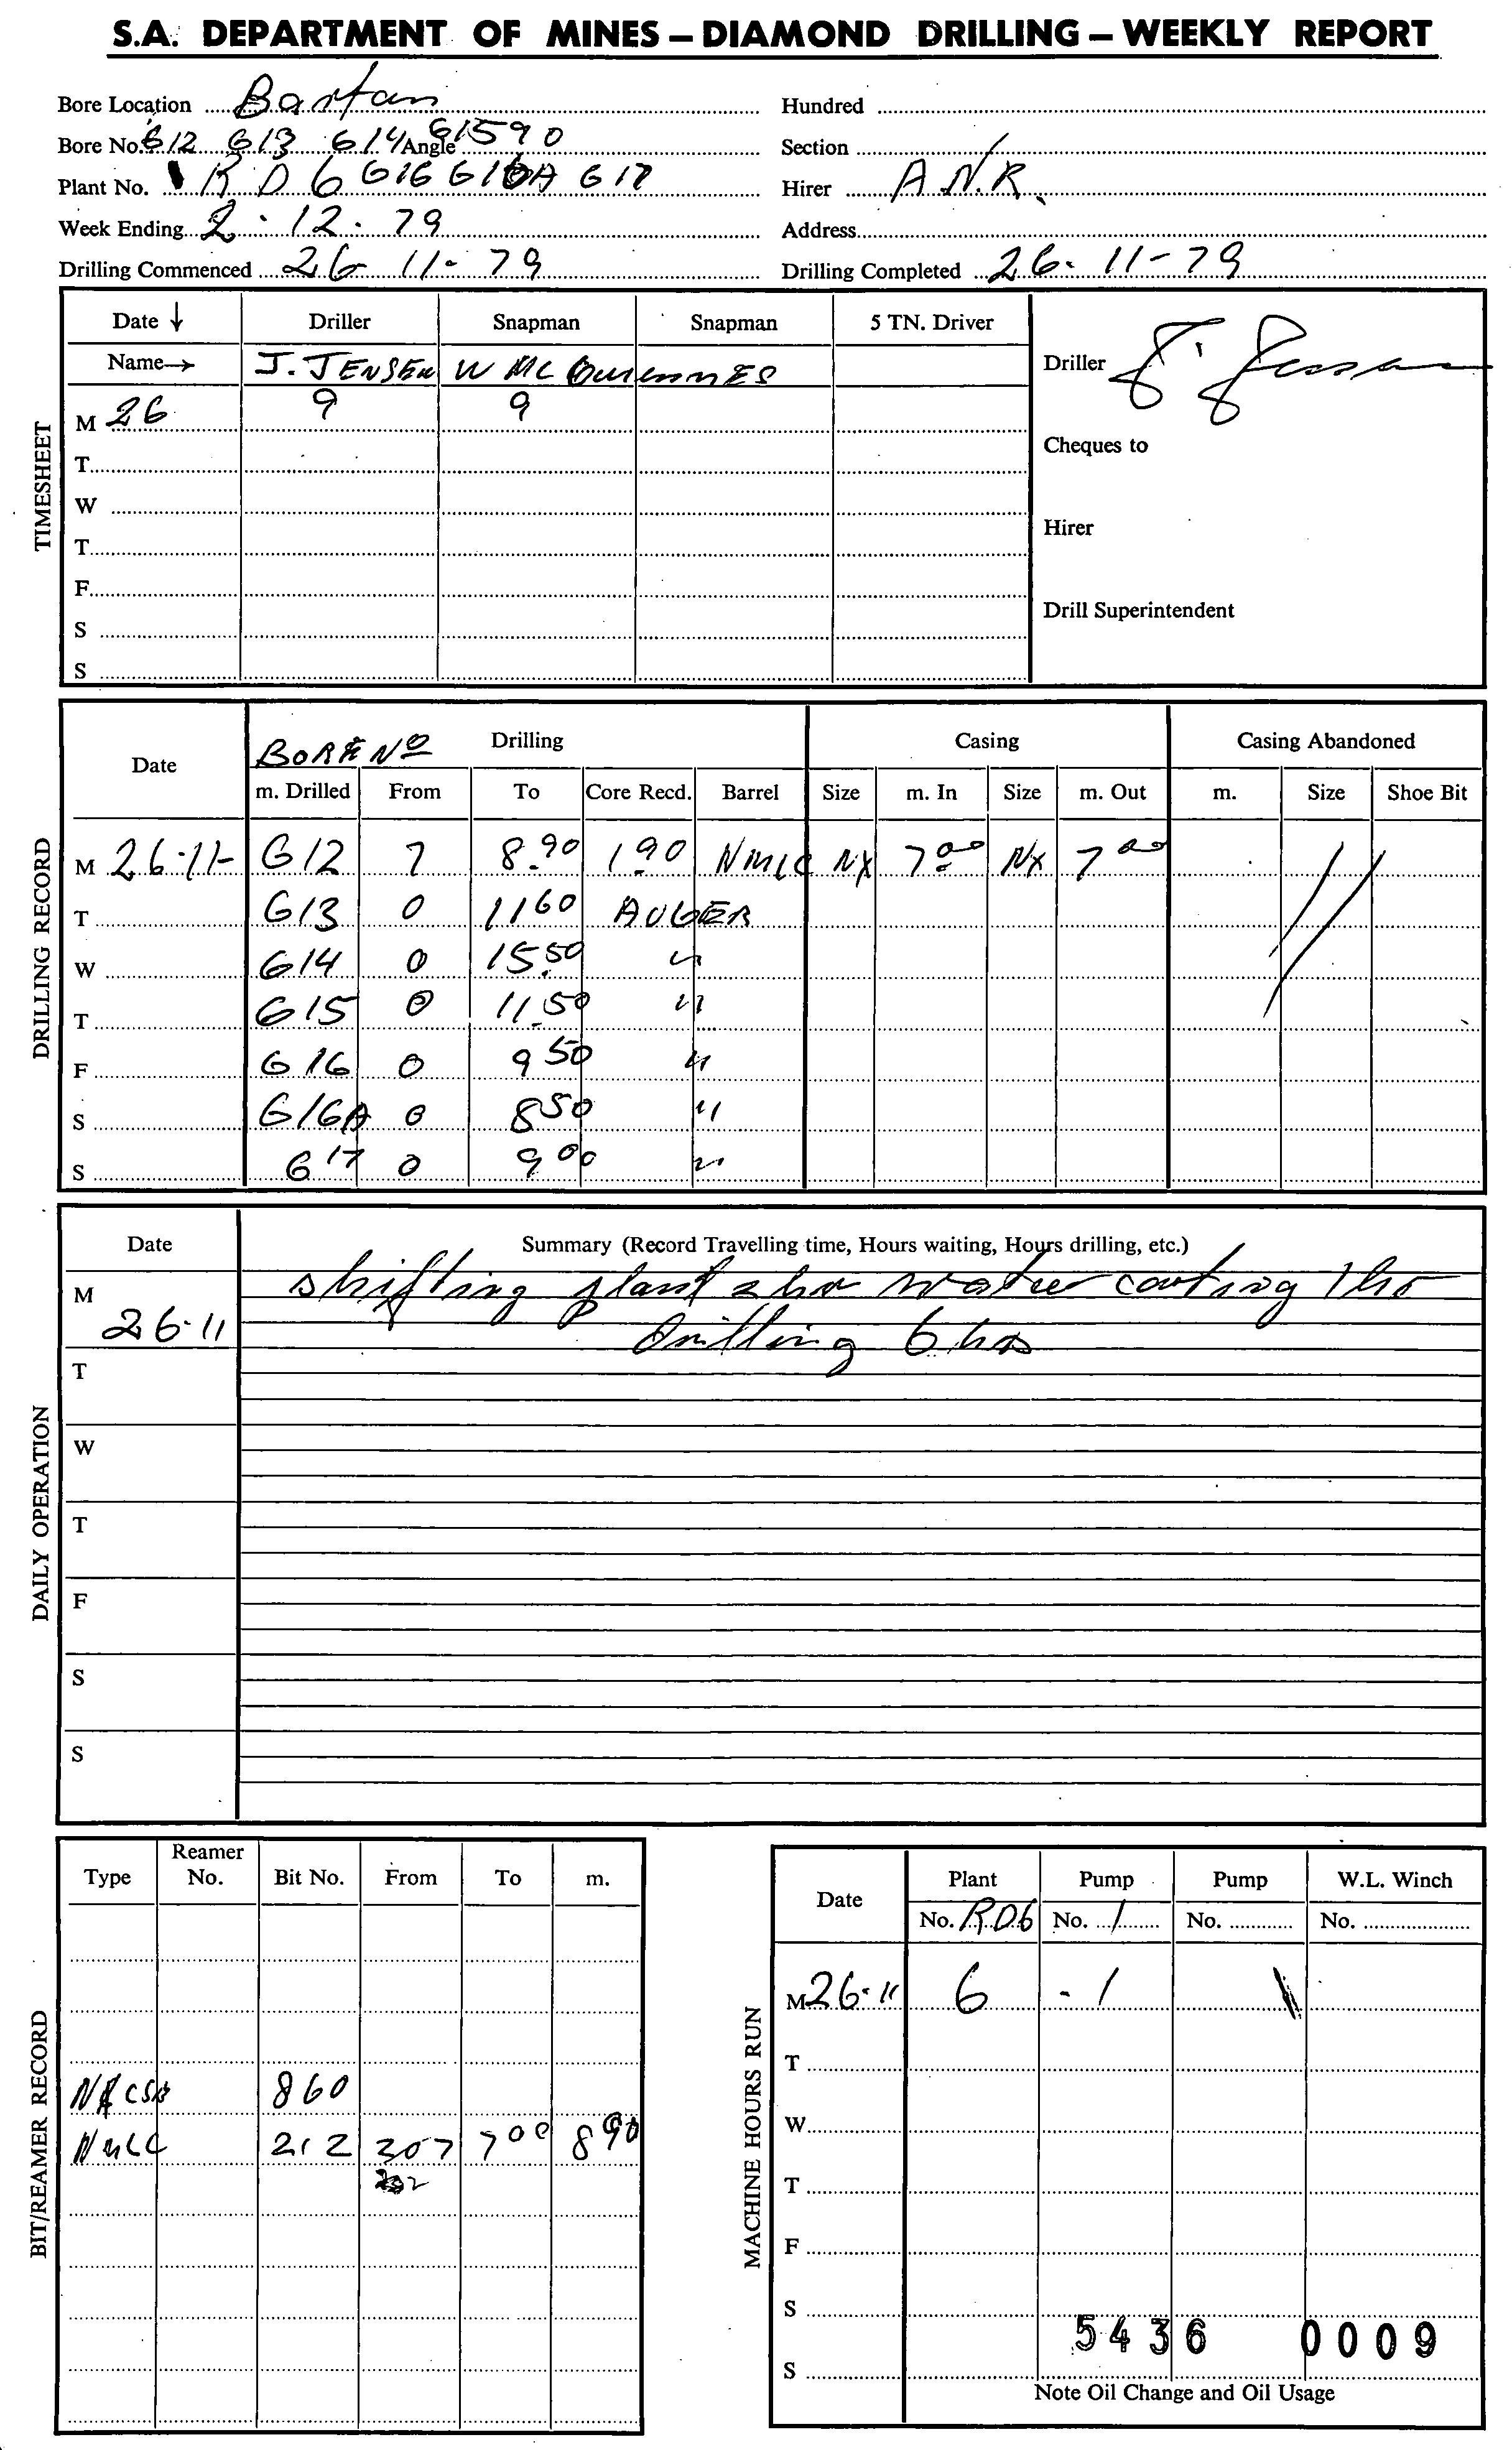 S.A. DEPARTMENT OF MINES – DIAMOND DRILLING – WEEKLY REPORT
Bore Location Barton Hundred
Bore No. G12 G13 G14 Angle G15 90 Section
Plant No. RD6 G16 G16A G17 Hirer A.N.R.
Week Ending 2.12.79 Address
Drilling Commenced 26-11-79 Drilling Completed 26-11-79
TIMESHEET
Date ↓ Driller Snapman Snapman 5 TN. Driver
Name→ J. JENSEN W MC
M 26 9 9
T
W
T
F
S
S
Driller J. Jensen
Cheques to
Hirer
Drill Superintendent
DRILLING RECORD
Date BORE No Drilling Casing Casing Abandoned
m. Drilled From To Core Recd. Barrel Size m. In Size m. Out m. Size Shoe Bit
M 26-11- G12 7 8.90 1.90 NMLC NX 7.00 NX 7.00
T G13 0 11.60 AUGER
W G14 0 15.50 "
T G15 0 11.50 "
F G16 0 9.50 "
S G16A 0 8.50 "
S G17 0 9.00 "
DAILY OPERATION
Date Summary (Record Travelling time, Hours waiting, Hours drilling, etc.)
M shifting plant 2 hr water carting 1 hr
26-11 drilling 6 hrs
T
W
T
F
S
S
BIT/REAMER RECORD
Type Reamer No. Bit No. From To m.
860
NMLC 212 307 7.00 8.90
MACHINE HOURS RUN
Date Plant Pump Pump W.L. Winch
No. RD6 No. 1 No. No.
M 26-11 6 - 1
T
W
T
F
S
5436 0009
S
Note Oil Change and Oil Usage